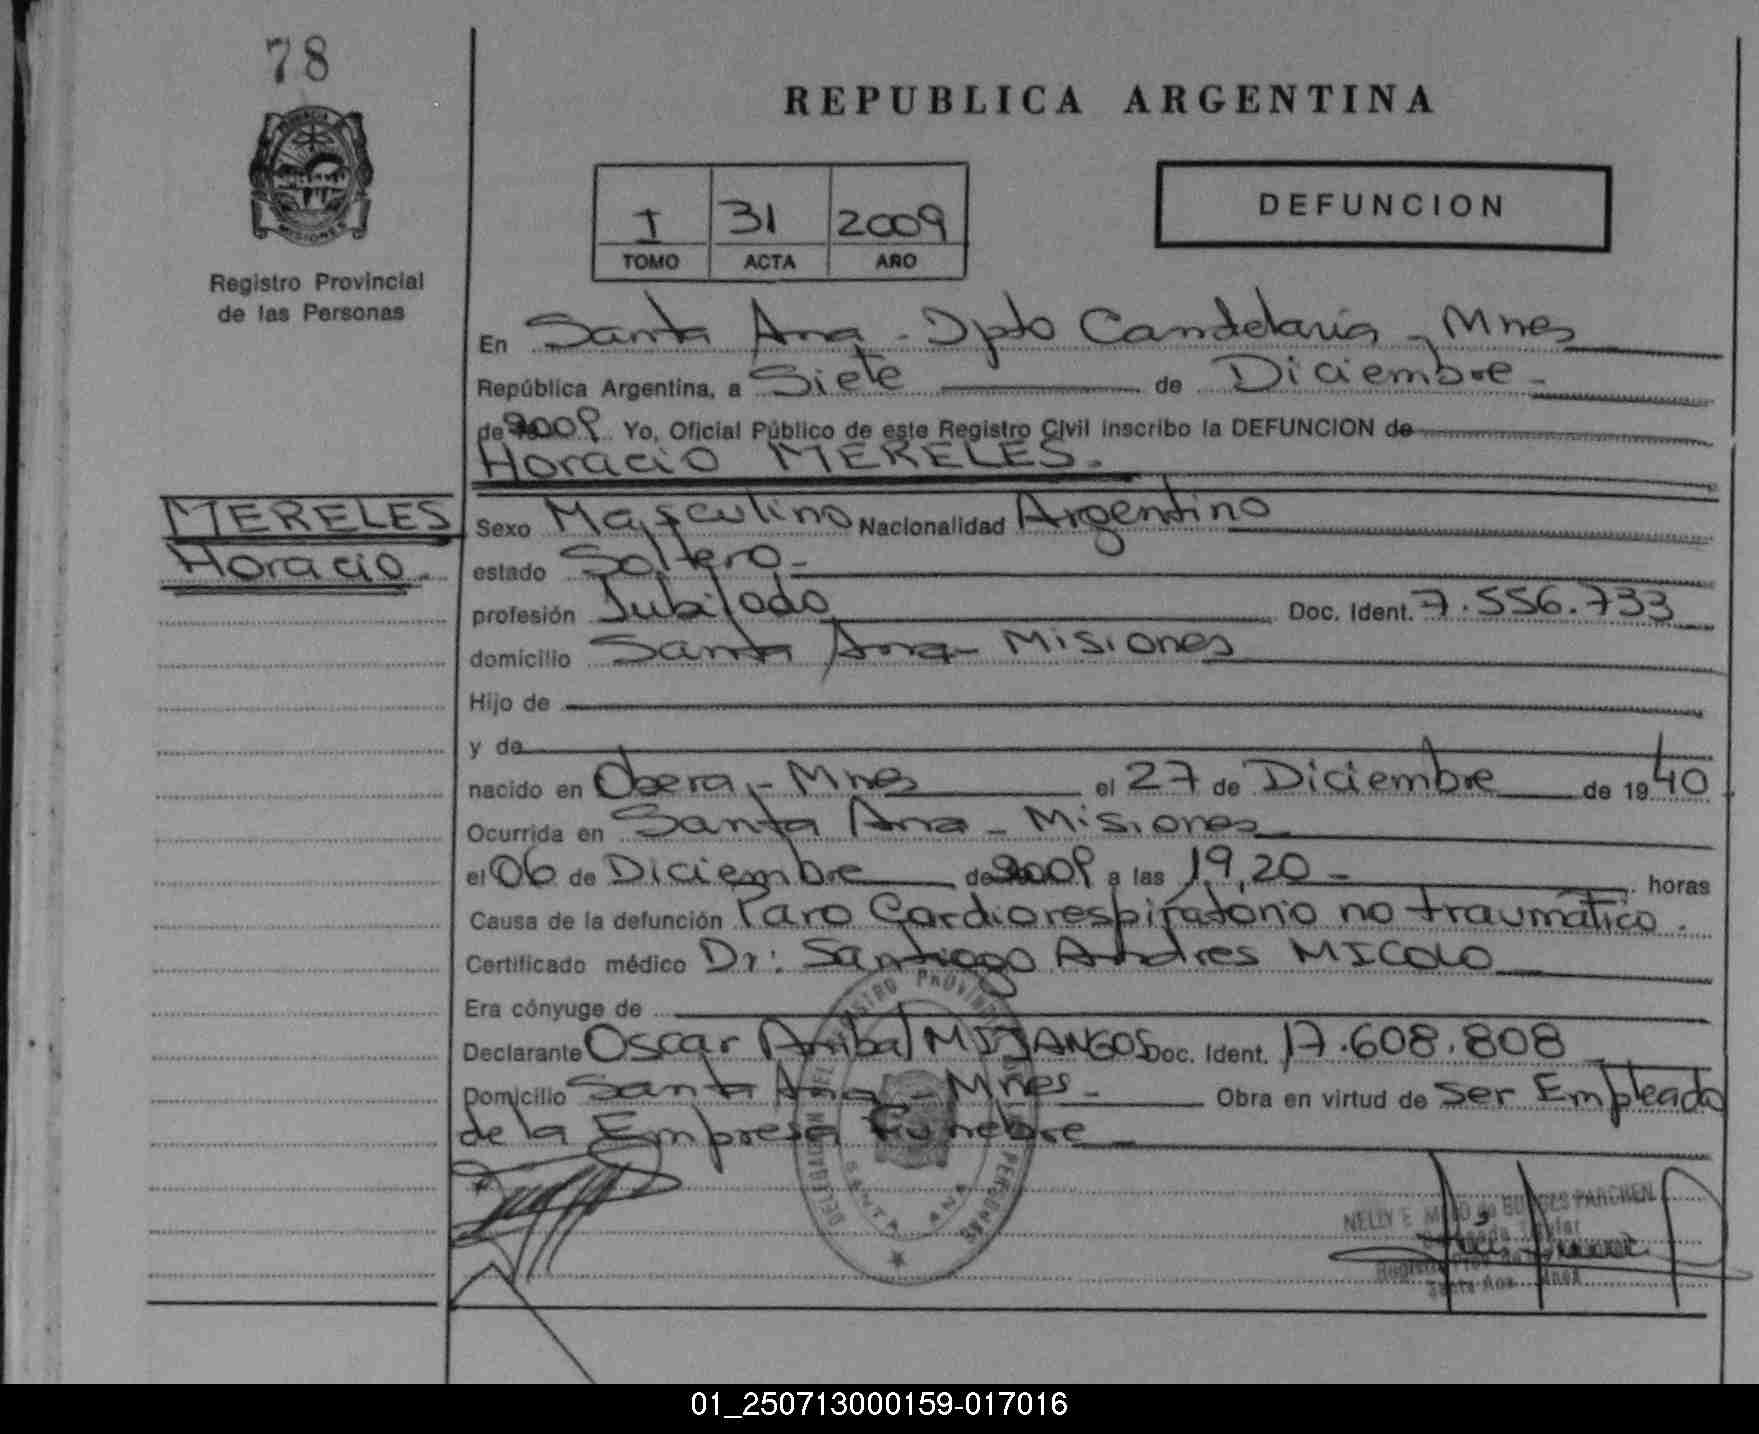 78
REPUBLICA ARGENTINA
DEFUNCION
I 31 2009
TOMO ACTA AÑO
Registro Provincial
de las Personas
En Santa Ana - Dpto Candelaria - Mnes
República Argentina, a Siete de Diciembre -
de 2009 Yo, Oficial Público de este Registro Civil inscribo la DEFUNCION de
Horacio MERELES.
MERELES
Horacio.
Sexo Masculino Nacionalidad Argentino
estado Soltero -
profesión Jubilado Doc. Ident. 7.556.733
domicilio Santa Ana - Misiones
Hijo de
y de
nacido en Obera - Mnes el 27 de Diciembre de 1940
Ocurrida en Santa Ana - Misiones
el 06 de Diciembre de 2009 a las 19,20 - horas
Causa de la defunción Paro Cardiorespiratorio no traumatico.
Certificado médico Dr: Santiago Andres MICOLO
Era cónyuge de
Declarante Oscar Anibal MIJANGOS Doc. Ident. 17.608.808
Domicilio Santa Ana - Mnes - Obra en virtud de Ser Empleado
de la Empresa Funebre
SANTA ANA
NELLY E.
Santa Ana - Mnes
01_250713000159-017016